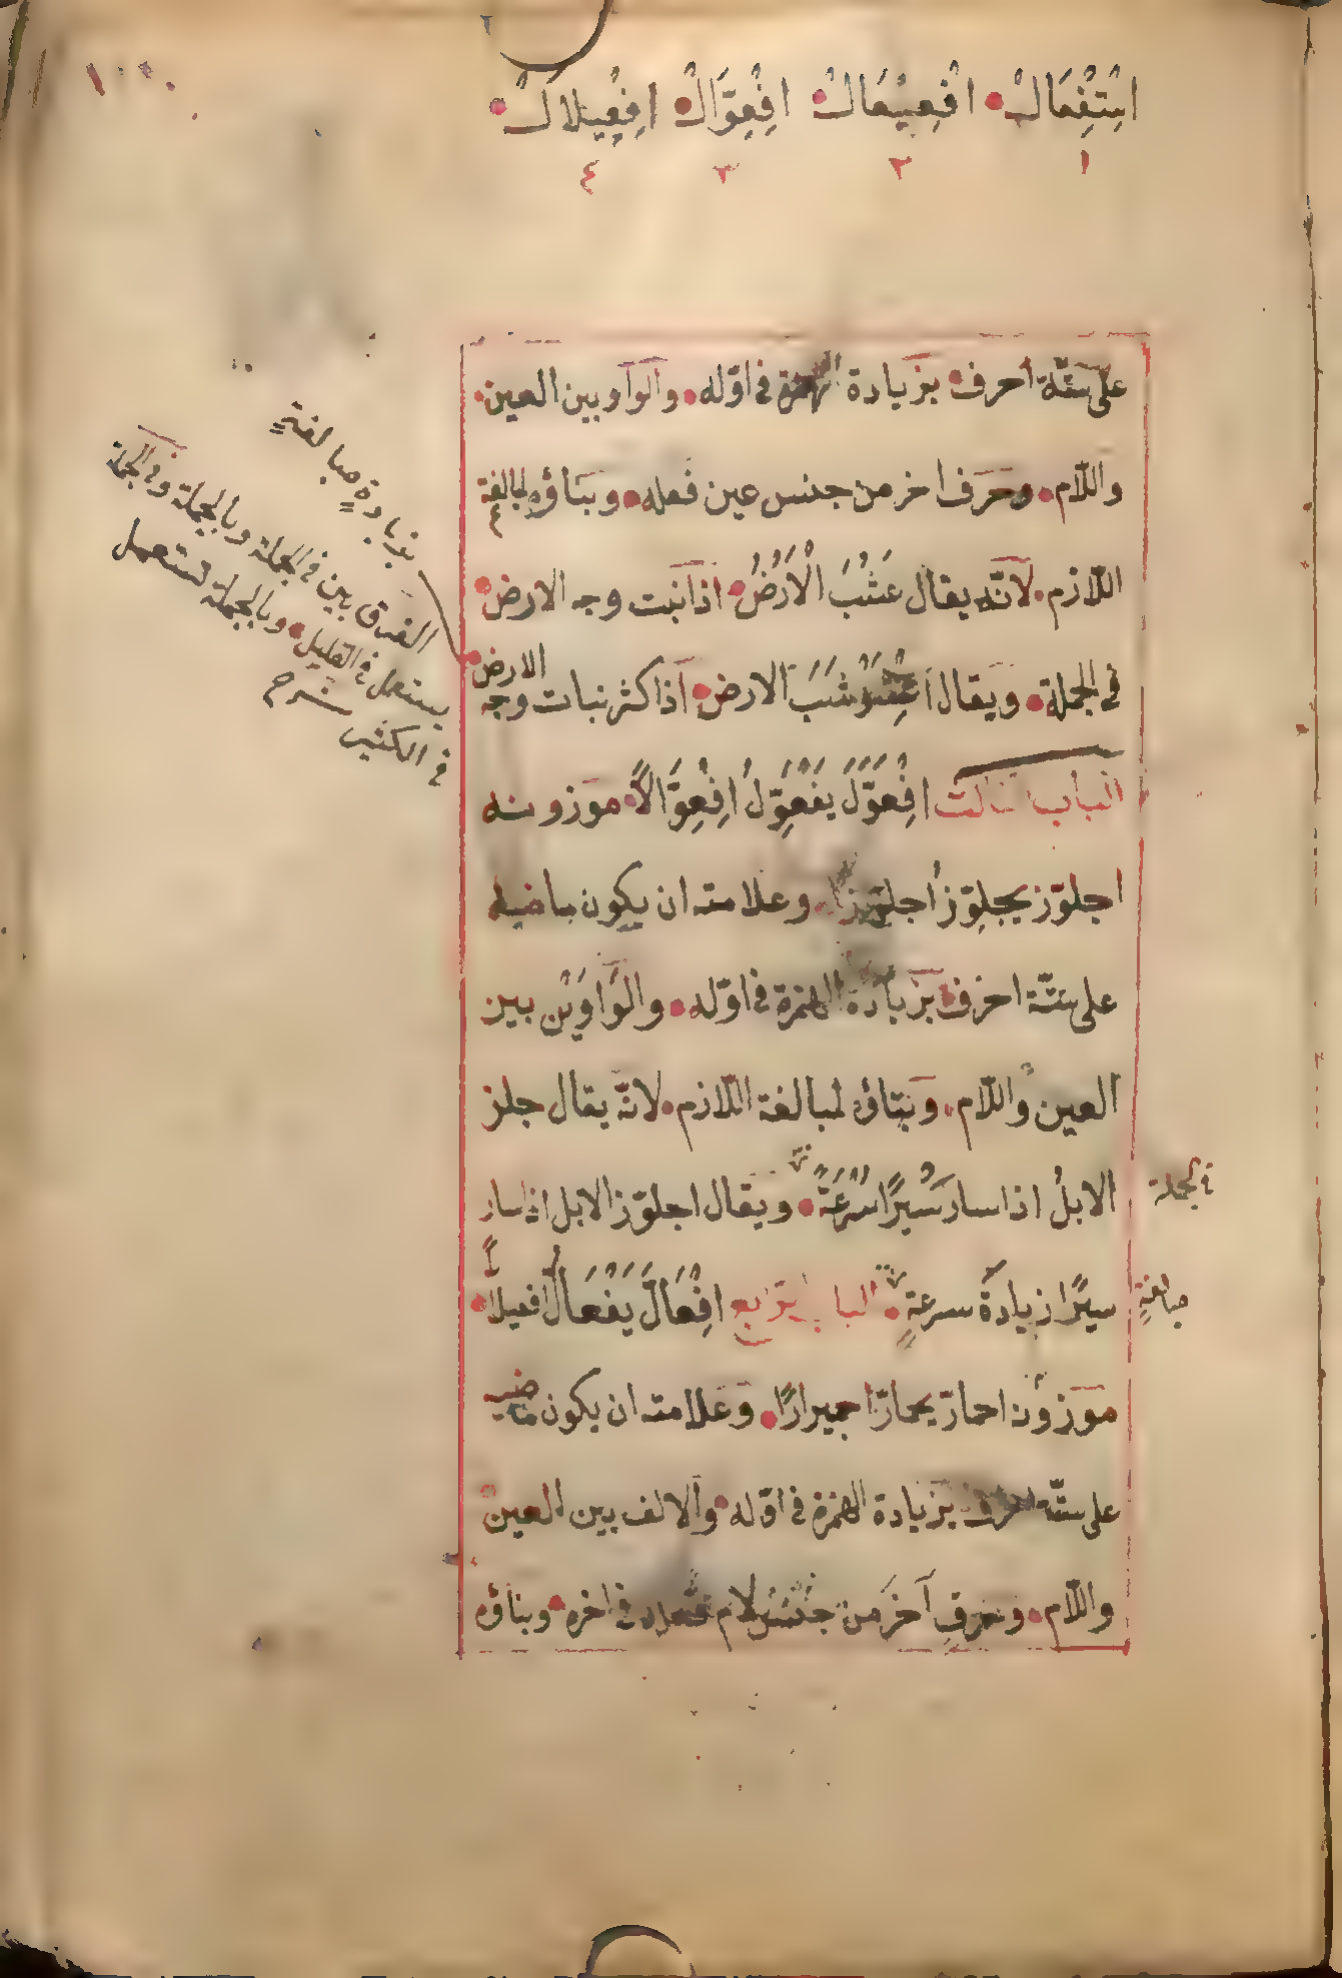 اِسْتِفْعَالْ اِفْعِيْعَالْ اِفْعِوَّالْ اِفْعِيلَالْ
١ ٢ ٣ ٤
على ستّة احرف بزيادة الهمزة فى اوّله والواو بين العين
واللّام وحرف اخر من جنس عين فعله وبناؤه لمبالغة
اللّازم لانّه يقال عَشُبَ الْاَرْضُ اذا نبت وجه الارض
فى الجملة ويقال اعْشَوْشَبَ الارض اذا كثر نبات وجه الارض
الباب الثالث افْعَوَّلَ يَفْعَوِّلُ اِفْعِوَّالًا موزونه
اجلوّز يجلوّز اجلوّازا وعلامته ان يكون ماضيه
على ستّة احرف بزيادة الهمزة فى اوّله والوَاوَيْن بين
العين واللّام وبناؤه لمبالغة اللّازم لانّه يقال جلز
الابلُ اذا سار سَيْرًا سُرْعَةً ويقال اجلوّز الابل اذا سار
سيرًا زيادة سرعةٍ الباب الرّابع افْعَالَّ يَفْعَالُّ افعيلالًا
موزونه احمارّ يحمارّ احميرارًا وعلامته ان يكون ماضيه
على ستّة احرف بزيادة الهمزة فى اوّله والالف بين العين
واللّام وحرفٍ آخرَ من جنس لام فعله فى اخره وبناؤه
بزيادةٍ مبالغةٍ
الفرق بين فى الجملة وبالجملة وفى الجملة
يستعمل فى القليل وبالجملة تستعمل
فى الكثير شرح
فى الجملة
مبالغةٍ